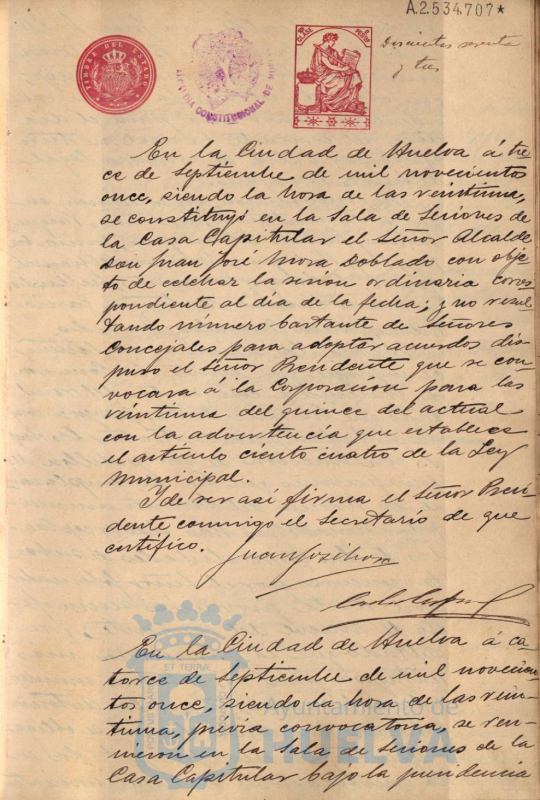 A.2.534.707*
TIMBRE DEL ESTADO
ALCALDIA CONSTITUCIONAL DE HUELVA
CLASE
PESO
Doscientos
y tres
En la Ciudad de Huelva á tre
ce de Septiembre de mil novecientos
once, siendo la hora de las veintiuna,
se constituyó en la Sala de Sesiones de
la Casa Capitular el Señor Alcalde
Don Juan José Mora Doblado con obje
to de celebrar la sesión ordinaria corres
pondiente al dia de la fecha; y no resul
tando número bastante de Señores
Concejales para adoptar acuerdos dis
puso el Señor Presidente que se con
vocara á la Corporación para las
veintiuna del quince del actual
con la advertencia que establece
el artículo ciento cuatro de la Ley
Municipal.
Y de ser así firma el Señor Presi
dente conmigo el Secretario de que
certifico. Juan José Mora
En la Ciudad de Huelva á ca
torce de Septiembre de mil novecien
tos once, siendo la hora de las vein
tiuna, previa convocatoria, se reu
nieron en la Sala de Sesiones de la
Casa Capitular bajo la presidencia
ET TERRÆ
Ayuntamiento de
HUELVA